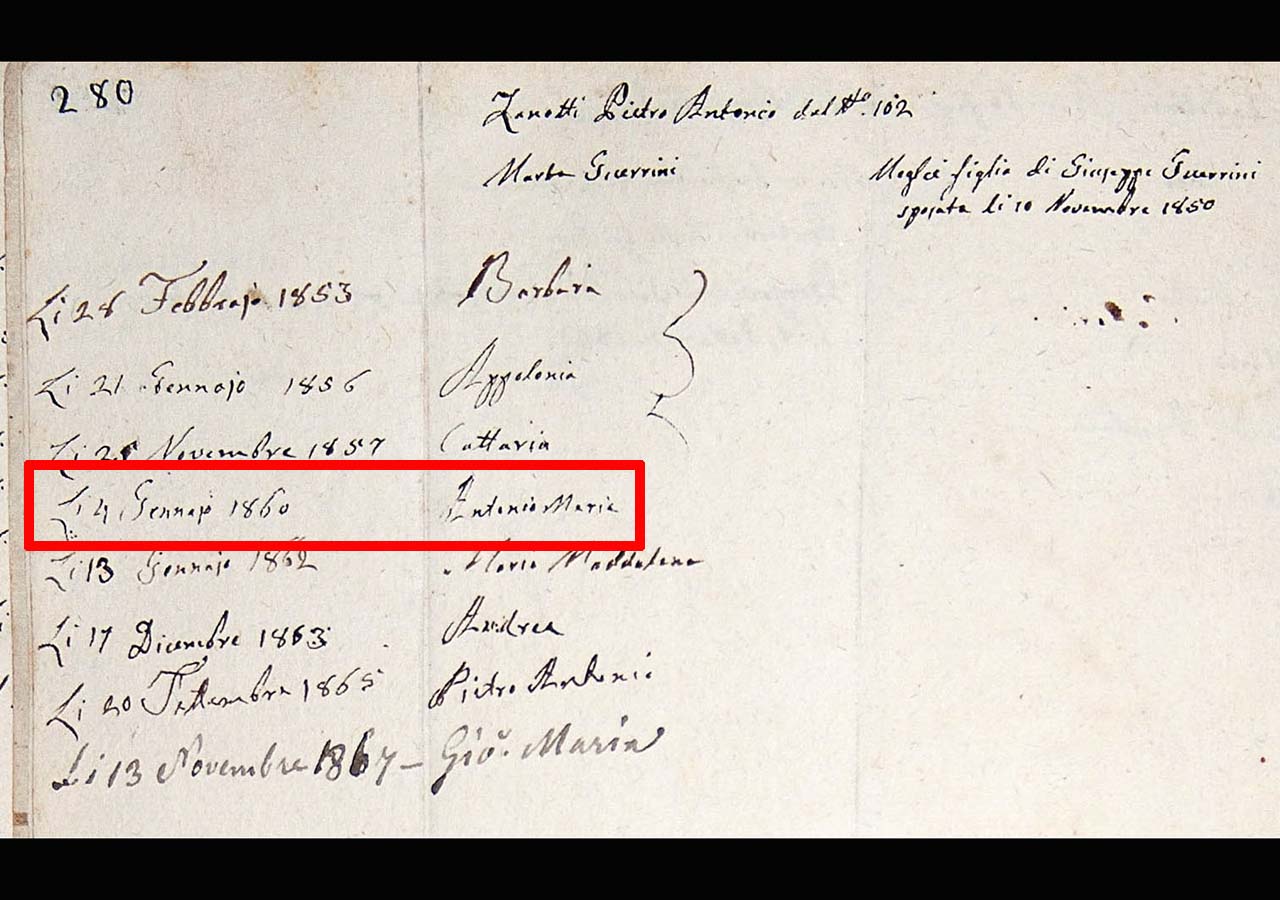 280
Zanotti Pietro Antonio dal No. 102
Marta Guerrini Moglie figlia di Giuseppe Guerrini
sposata li 10 Novembre 1850
Li 28 Febbrajo 1853 Barbara
Li 21 Gennajo 1856 Appolonia
Li Novembre 1857 Cattaria
Li 4 Gennajo 1860 Antonio Maria
Li 13 Gennajo 1862 Maria Maddalena
Li 17 Dicembre 1863 Andrea
Li 20 Settembre 1865 Pietro Antonio
Li 13 Novembre 1867 – Gio. Maria